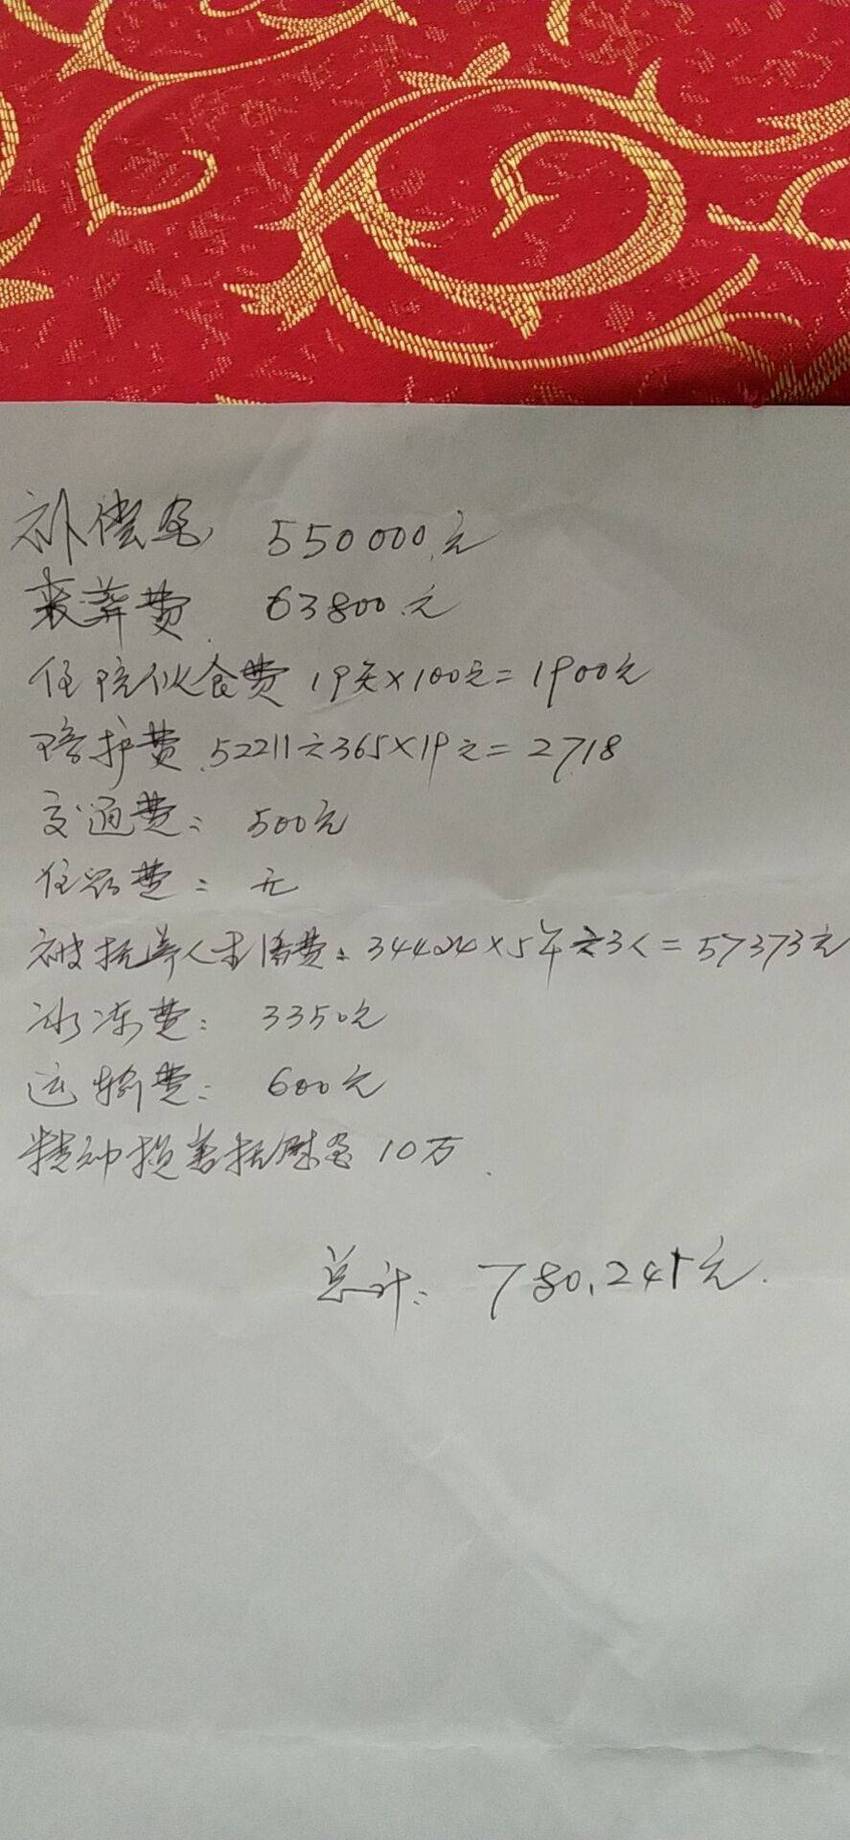 补偿金 550000元
丧葬费 63800元
住院伙食费 19天×100元=1900元
陪护费 52211÷365×19元=2718
交通费: 500元
住宿费: 无
被抚养人生活费: 34424×5年÷3人=57373元
冰冻费: 3350元
运输费: 600元
精神损害抚慰金 10万
总计: 780.241元